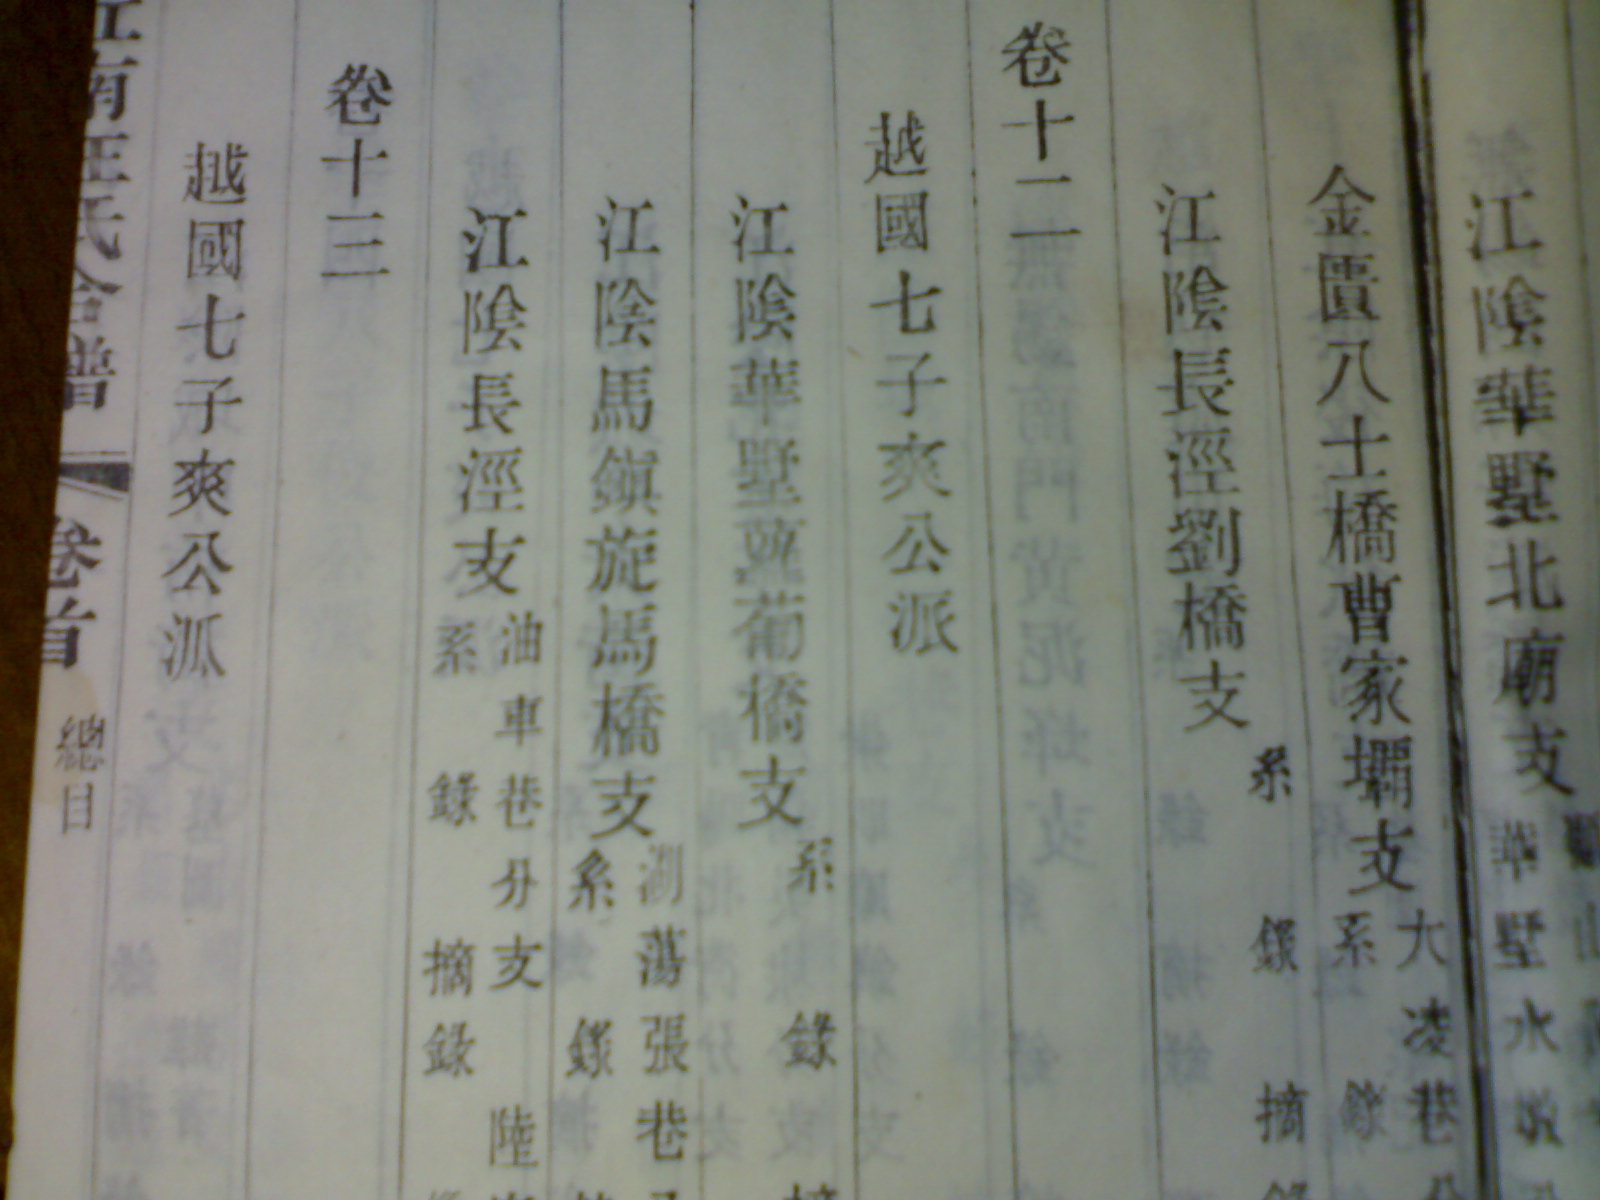 江陰華墅北廟支
華墅水
金匱八士橋曹家壩支
大凌巷
系錄
江陰長涇劉橋支
系錄摘錄
卷十二
越國七子爽公派
江陰華墅葡橋支
系錄
江陰馬鎮旋馬橋支
蕩張巷
系錄
江陰長涇支
油車巷分支陸
系錄摘錄
卷十三
越國七子爽公派
江南汪氏合譜 卷首 總目